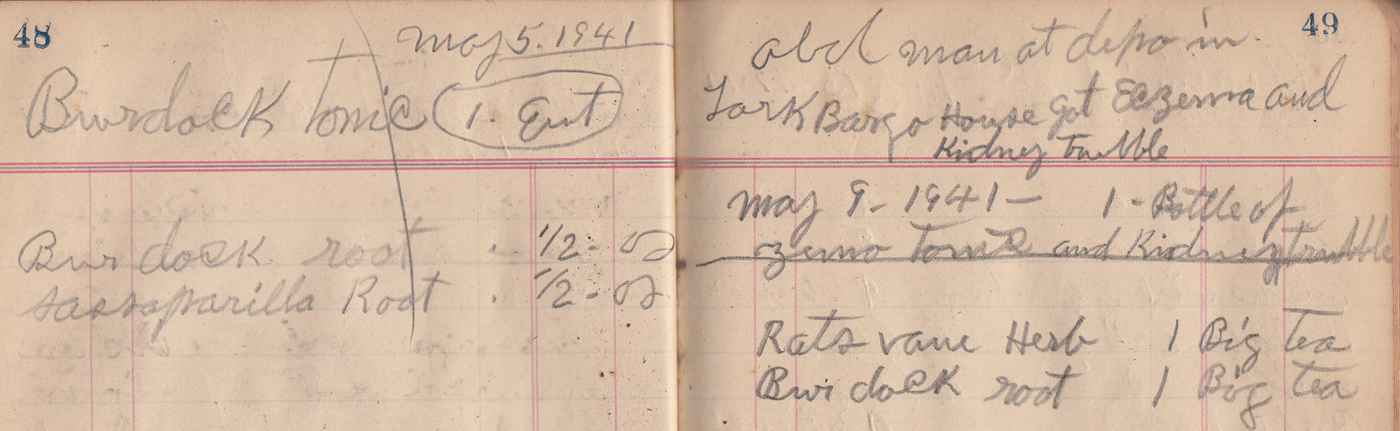 48
May 5. 1941
Burdock Tonic 1. Ent
Burdock root . 1/2 - oz
sassaparilla Root . 1/2 - oz
49
abd man at depo in
York Bargo House got Eczema and
Kidney trubble
May 9 - 1941 - 1 - Bottle of
zemo Tonic and Kidney trubble
Rats vane Herb 1 Big tea
Burdock root 1 Big tea